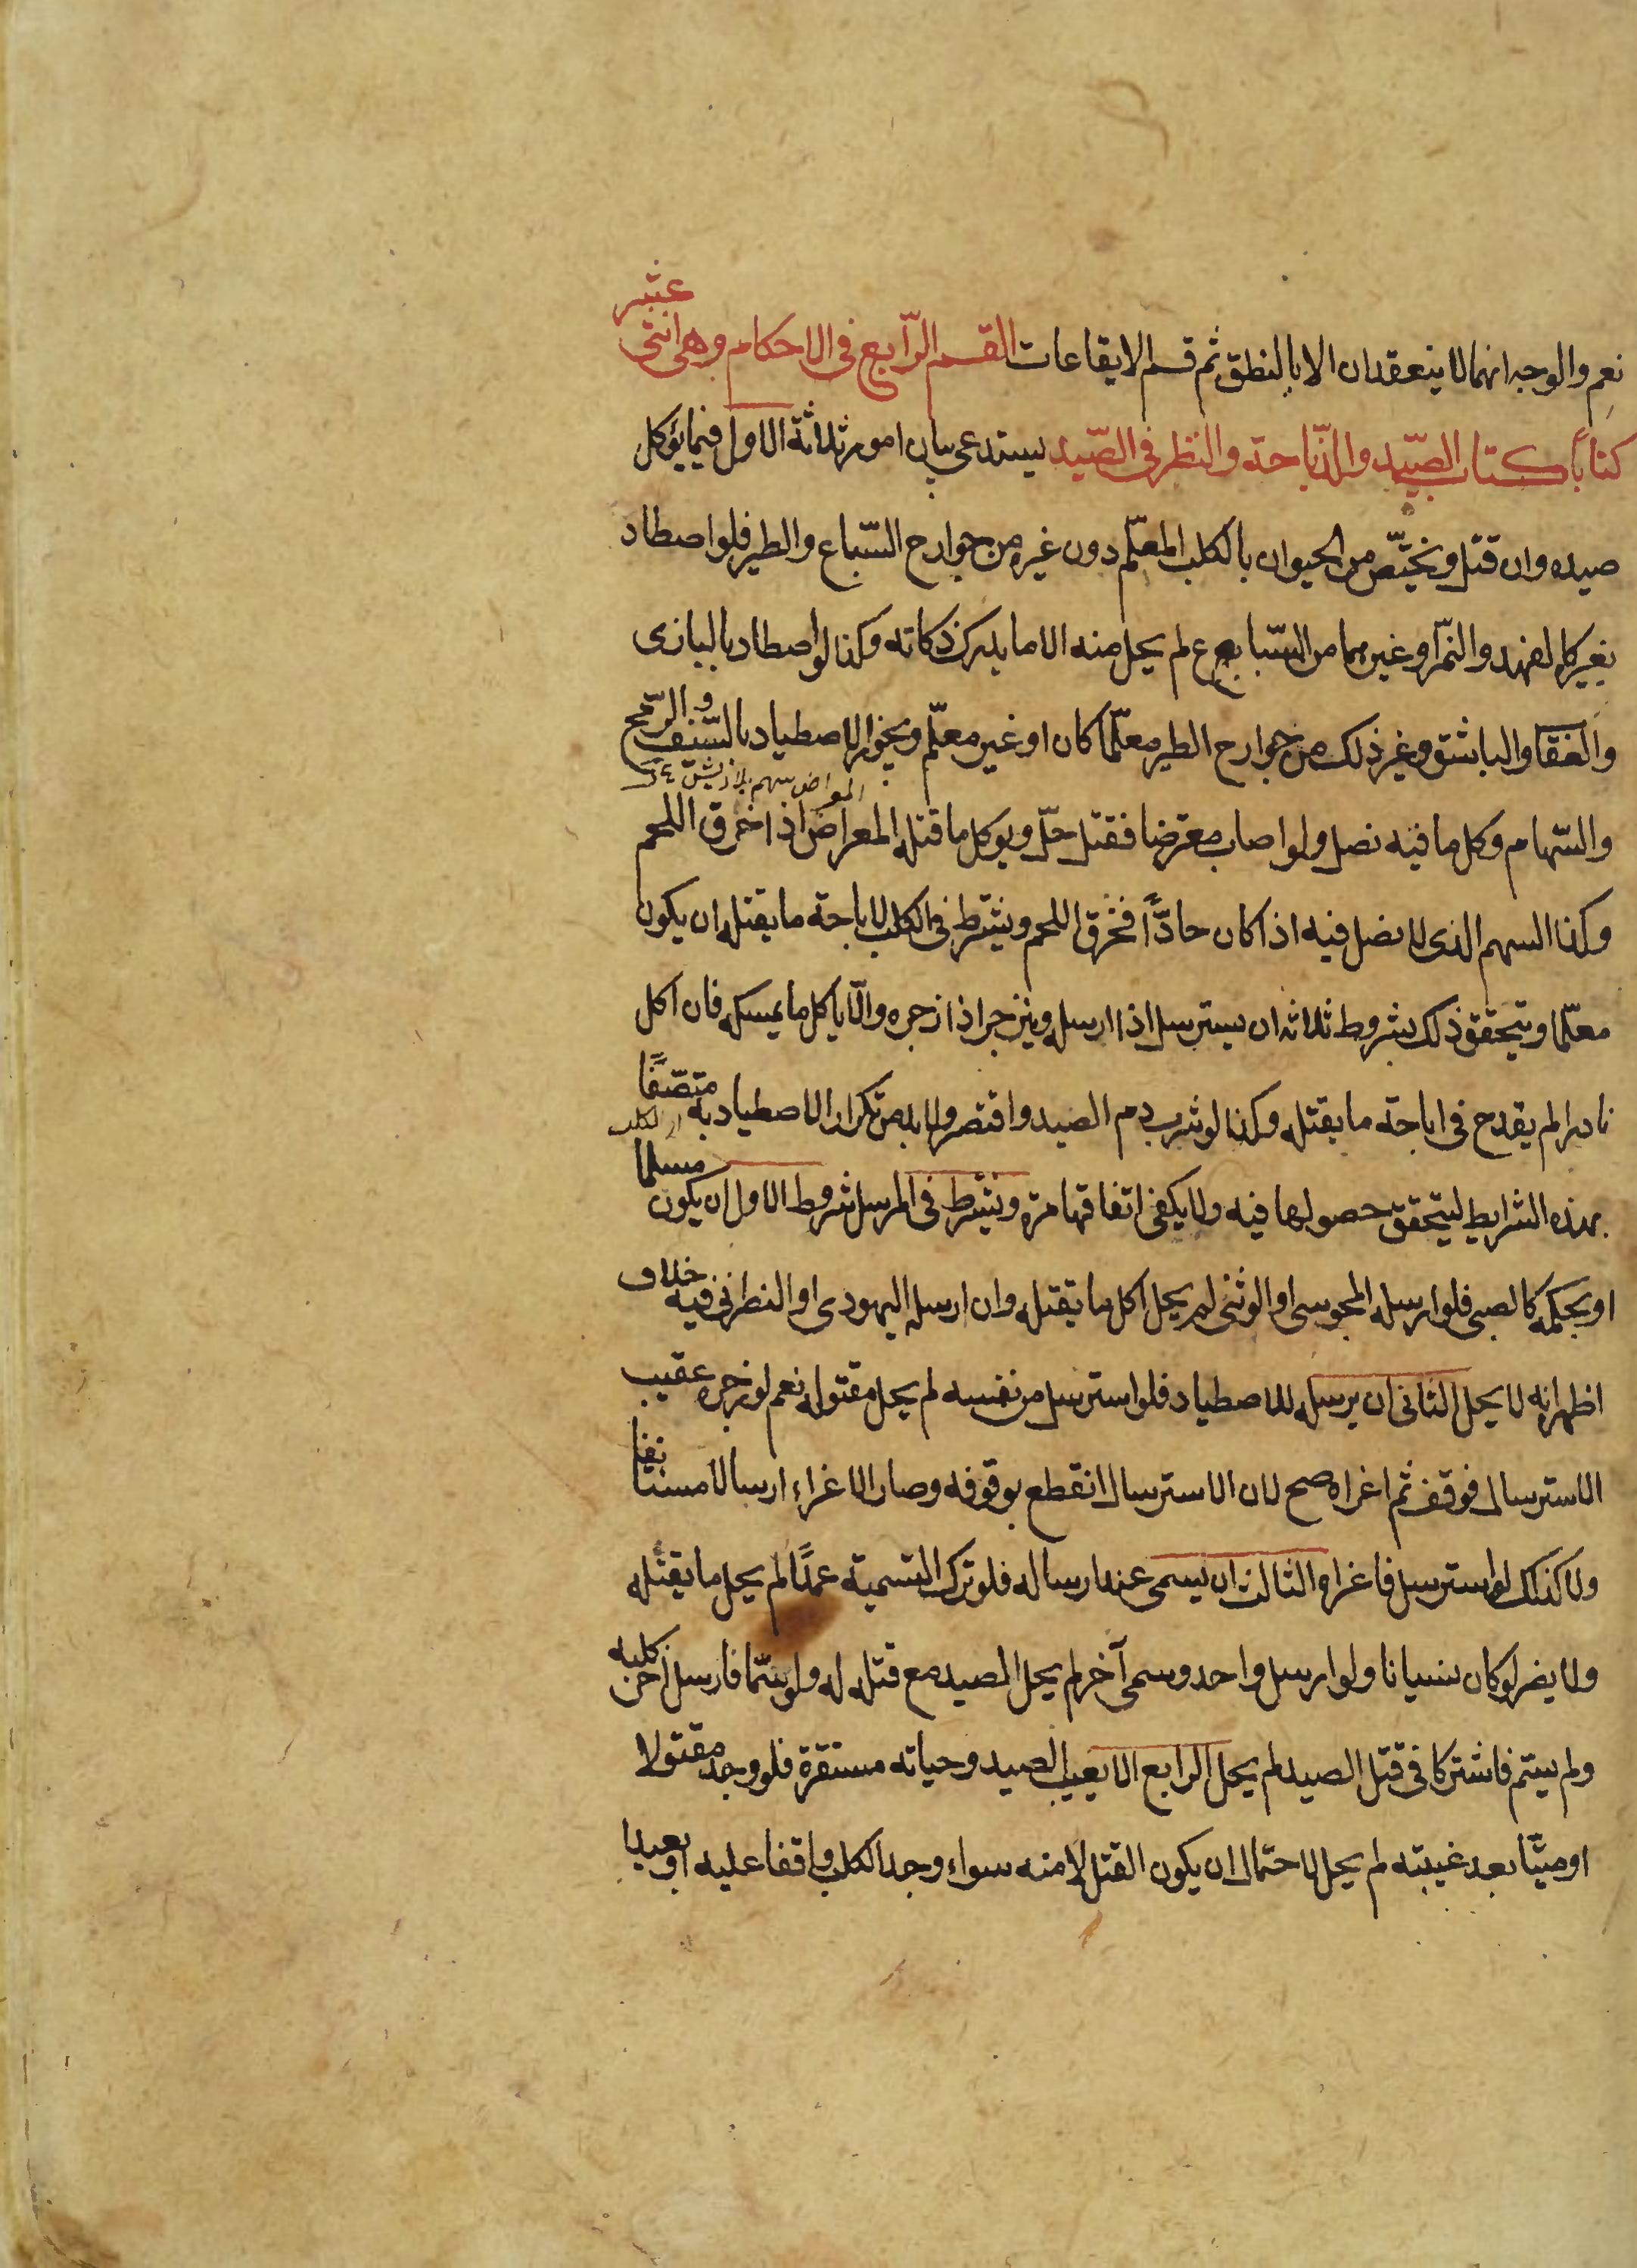 نعم والوجه انهما لا ينعقدان الا بالنطق ثم قسم الايقاعات القسم الرّابع فى الاحكام وهى اثنى عشر
كتاباً كتاب الصّيد والذّباحة والنظر فى الصّيد يستدعى بيان امور ثلاثة الاول فيما يؤكل
صيده وان قتل ويختصّ من الحيوان بالكلب المعلّم دون غيره من جوارح السّباع والطير فلو اصطاد
بغيره كالفهد والنّمر او غيرهما من السّباع لم يحل منه الا ما يدرك ذكاته وكذا لو اصطاد بالبازى
والعقاب والباشق وغير ذلك من جوارح الطير معلّما كان او غير معلّم ويجوز الاصطياد بالسّيف والرّمح
المعراض سهم بلا ريش
والسّهام وكل ما فيه نصل ولو اصاب معترضا فقتل حلّ ويوكل ما قتله المعراض اذا خرق اللحم
وكذا السهم الذى لا نصل فيه اذا كان حادّاً فخرق اللحم ويشترط فى الكلب لاباحة ما يقتله ان يكون
معلّما ويتحقق ذلك بشروط ثلاثه ان يسترسل اذا ارسله وينزجر اذا زجره والّا ياكل ما يمسكه فان اكل
نادرا لم يقدح فى اباحة ما يقتله وكذا لو شرب دم الصيد واقتصر ولا بد من تكرار الاصطياد به متصّفًا
اى الكلب
بهذه الشرايط ليتحقق حصولها فيه ولا يكفى اتفاقها مرة ويشترط فى المرسل شروط الاول ان يكون مسلما
او بحكمه كالصبى فلو ارسله المجوسى او الوثنى لم يحل اكل ما يقتله وان ارسله اليهودى او النصرانى فيه خلاف
اظهر انه لا يحل الثانى ان يرسله للاصطياد فلو استرسل من نفسه لم يحل مقتوله نعم لو زجره عقيب
الاسترسال فوقف ثم اغراه صح لان الاسترسال انقطع بوقوفه وصار الاغراء ارسالا مستانفا
ولا كذلك لو استرسل فاغراه الثالث ان يسمى عند ارساله فلو ترك التسمية عمدًا لم يحل ما يقتله
ولا يضر لو كان نسيانا ولو ارسل واحد وسمى آخر لم يحل الصيد مع قتله له ولو سمّا فارسل آخر كلبه
ولم يسم فاشتركا فى قتل الصيد لم يحل الرابع الا يغيب الصيد وحياته مستقرة فلو وجد مقتولا
او ميتًا بعد غيبته لم يحل لاحتمال ان يكون القتل لا منه سواء وجد الكلب واقفا عليه او بعيدا